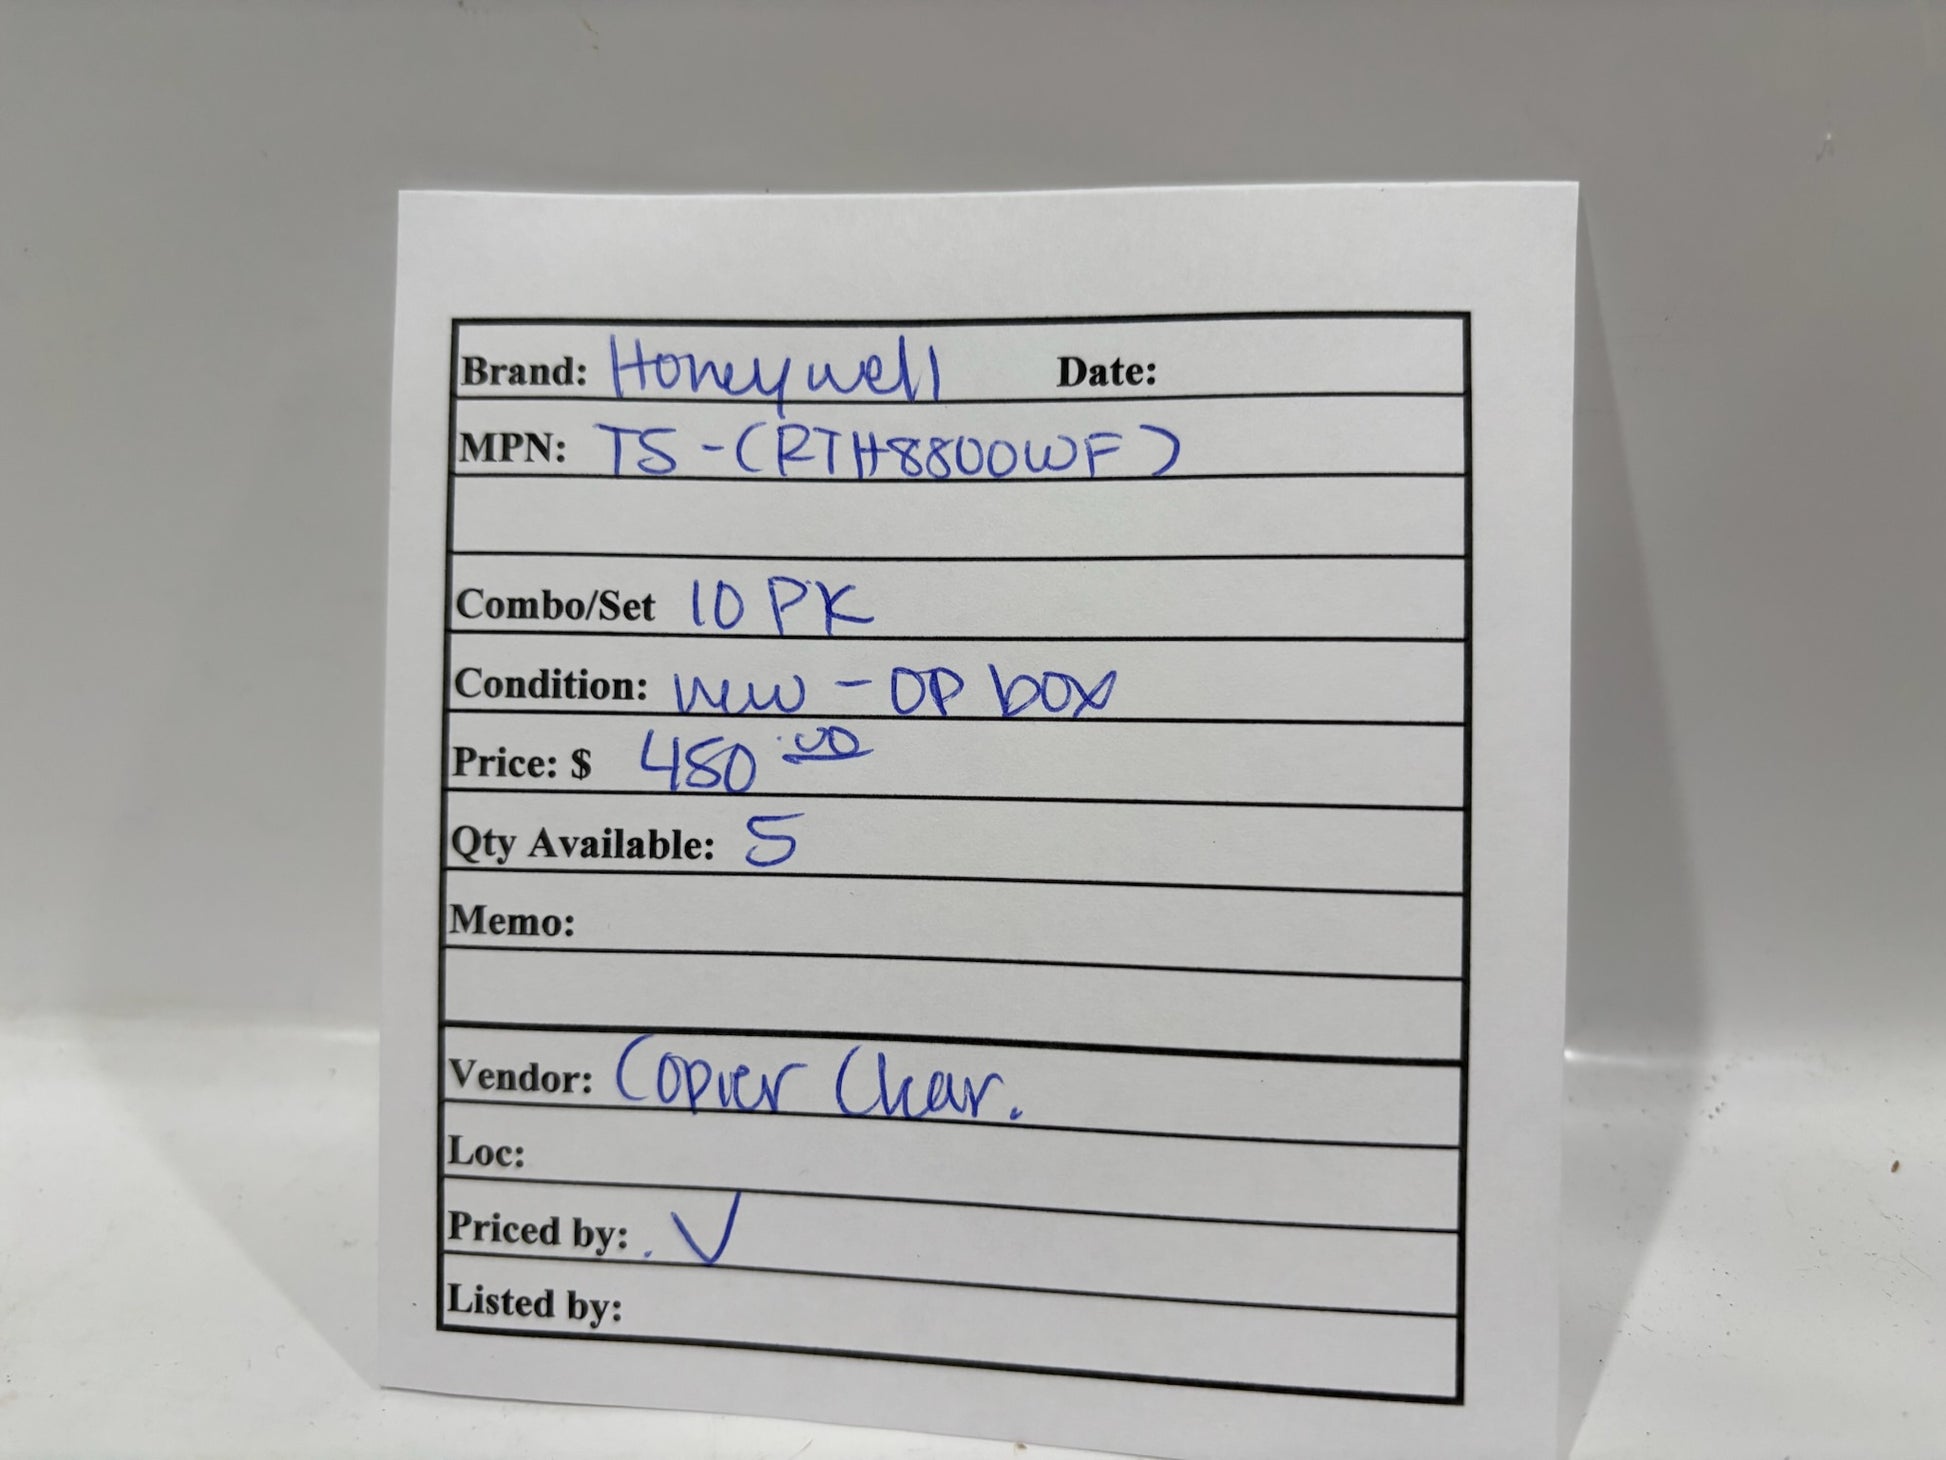 Brand: Honeywell Date:
MPN: TS-(RTH8800WF)
Combo/Set 10 PK
Condition: new - OP box
Price: $ 450.00
Qty Available: 5
Memo:
Vendor: Copier Clear.
Loc:
Priced by: V
Listed by: